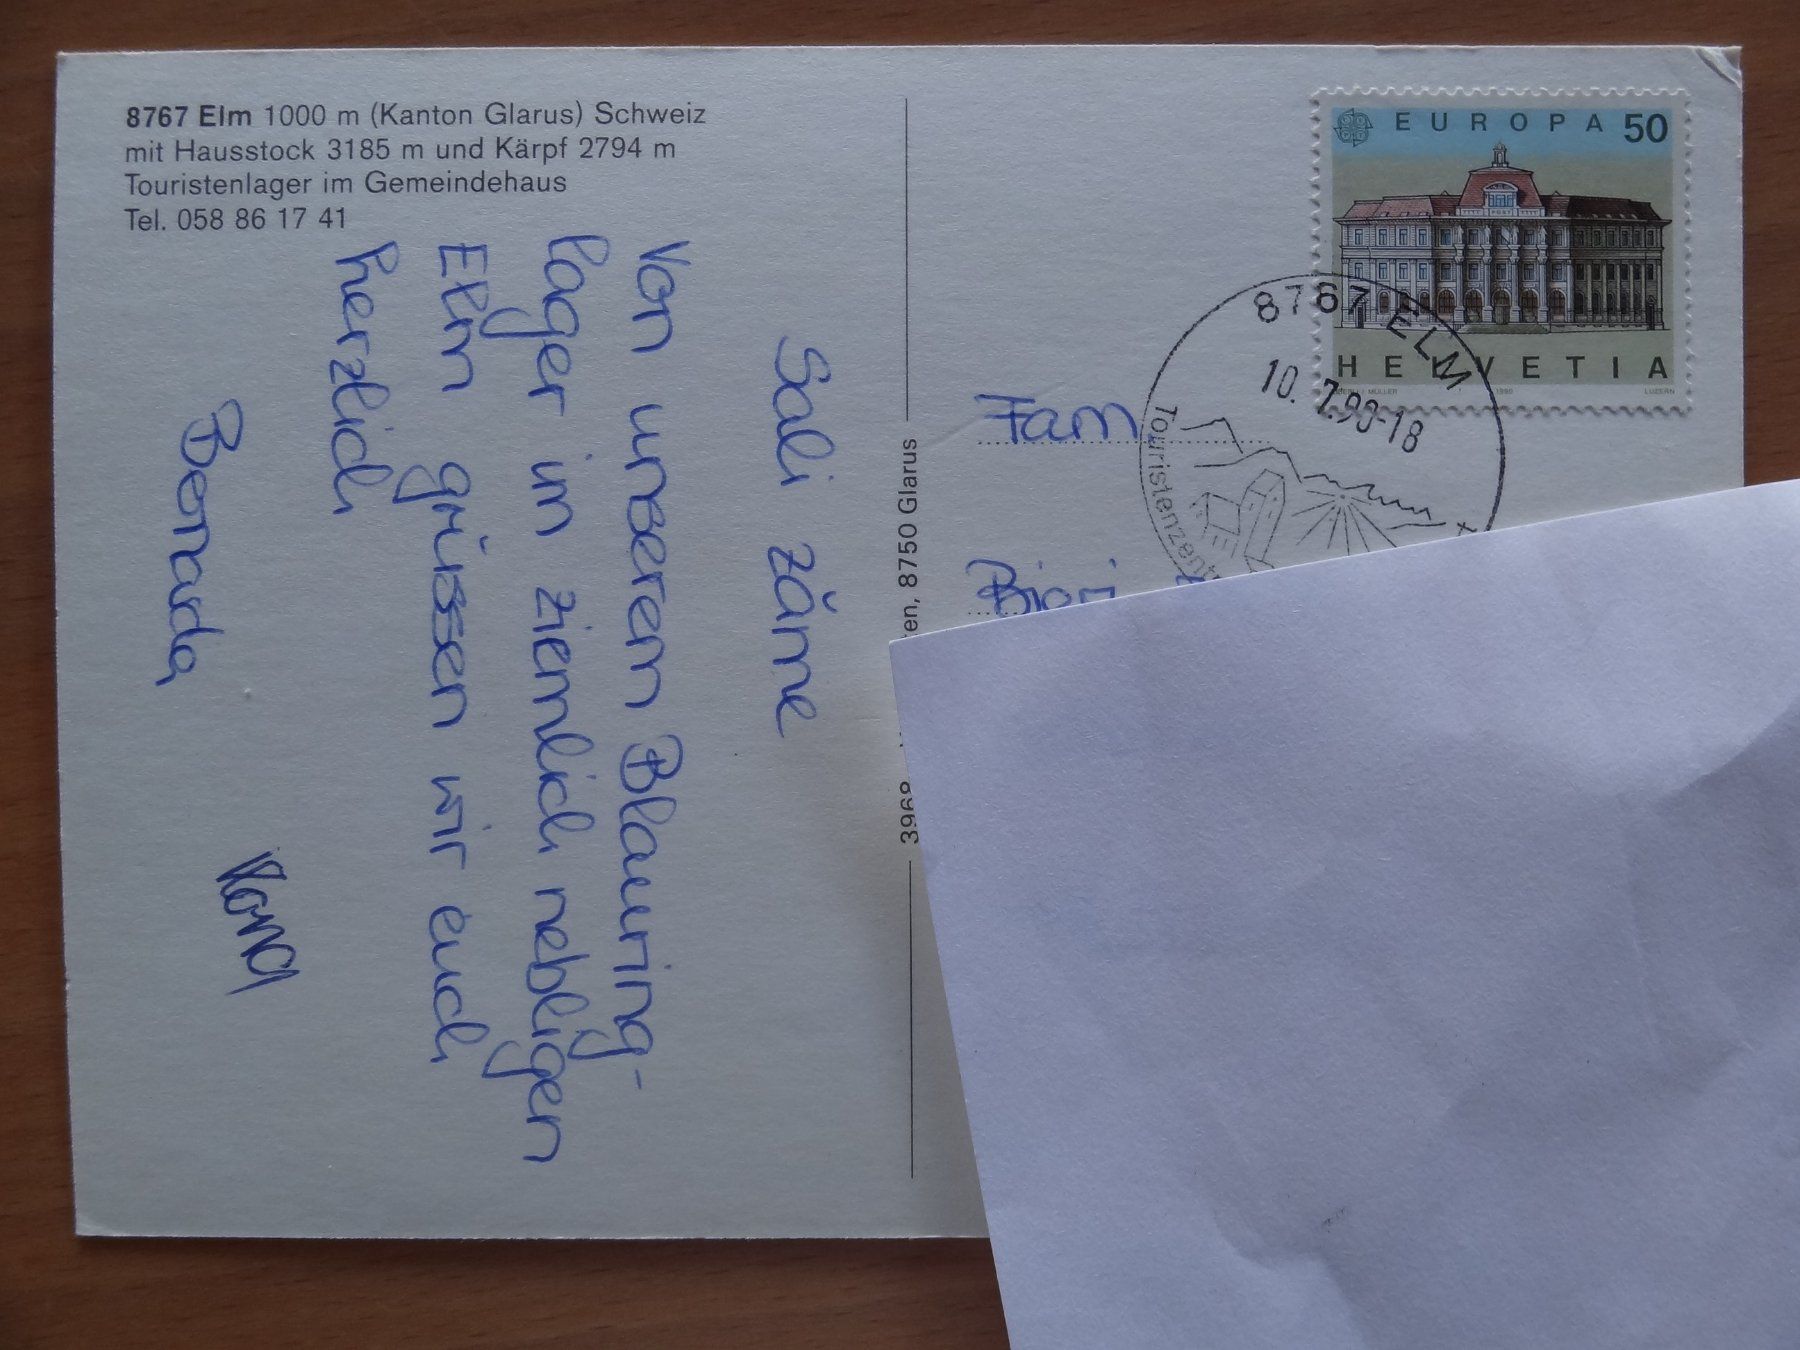 8767 Elm 1000 m (Kanton Glarus) Schweiz
mit Hausstock 3185 m und Kärpf 2794 m
Touristenlager im Gemeindehaus
Tel. 058 86 17 41
Sali zäme
Von unserem Blauring-
lager im ziemlich nebligen
Elm grüssen wir euch
herzlich
Bernarda
3968
ten, 8750 Glarus
EUROPA 50
HELVETIA
MÜLLER 1990 LUZERN
8767 ELM
10.7.90-18
Touristenzent
Fam